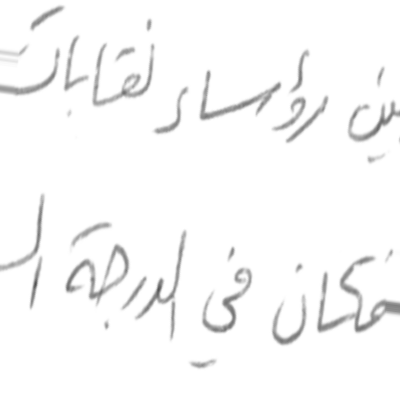 بين رؤساء نقابات
فكان في الدرجة ال